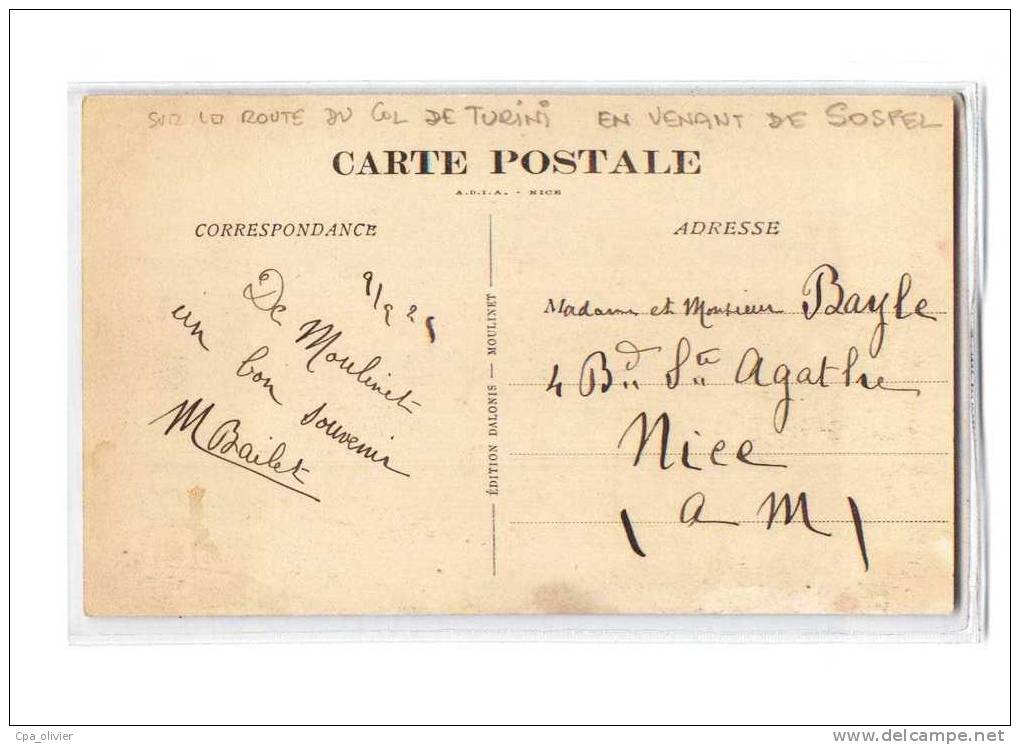 SUR LA ROUTE DU COL DE TURINI EN VENANT DE SOSPEL
CARTE POSTALE
A.D.I.A. - NICE
CORRESPONDANCE
9/9 25
De Moulinet
un bon souvenir
M Bailet
ÉDITION DALONIS — MOULINET
ADRESSE
Madame et Monsieur Bayle
4 Bd Ste Agathe
Nice
(a M)
Cpa_olivier
www.delcampe.net